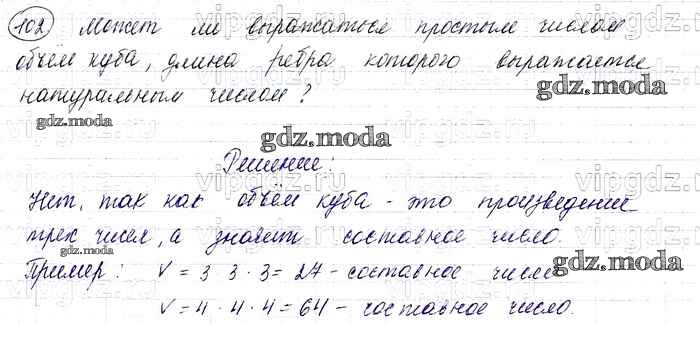 102 Может ли выражаться простым числом
объём куба, длина ребра которого выражается
натуральным числом?
gdz.moda
gdz.moda
gdz.moda
Решение:
Нет, так как объём куба - это произведение
трех чисел, а значит составное число.
gdz.moda
Пример: V = 3 3 · 3 = 27 - составное число
gdz.moda
V = 4 · 4 · 4 = 64 - составное число.